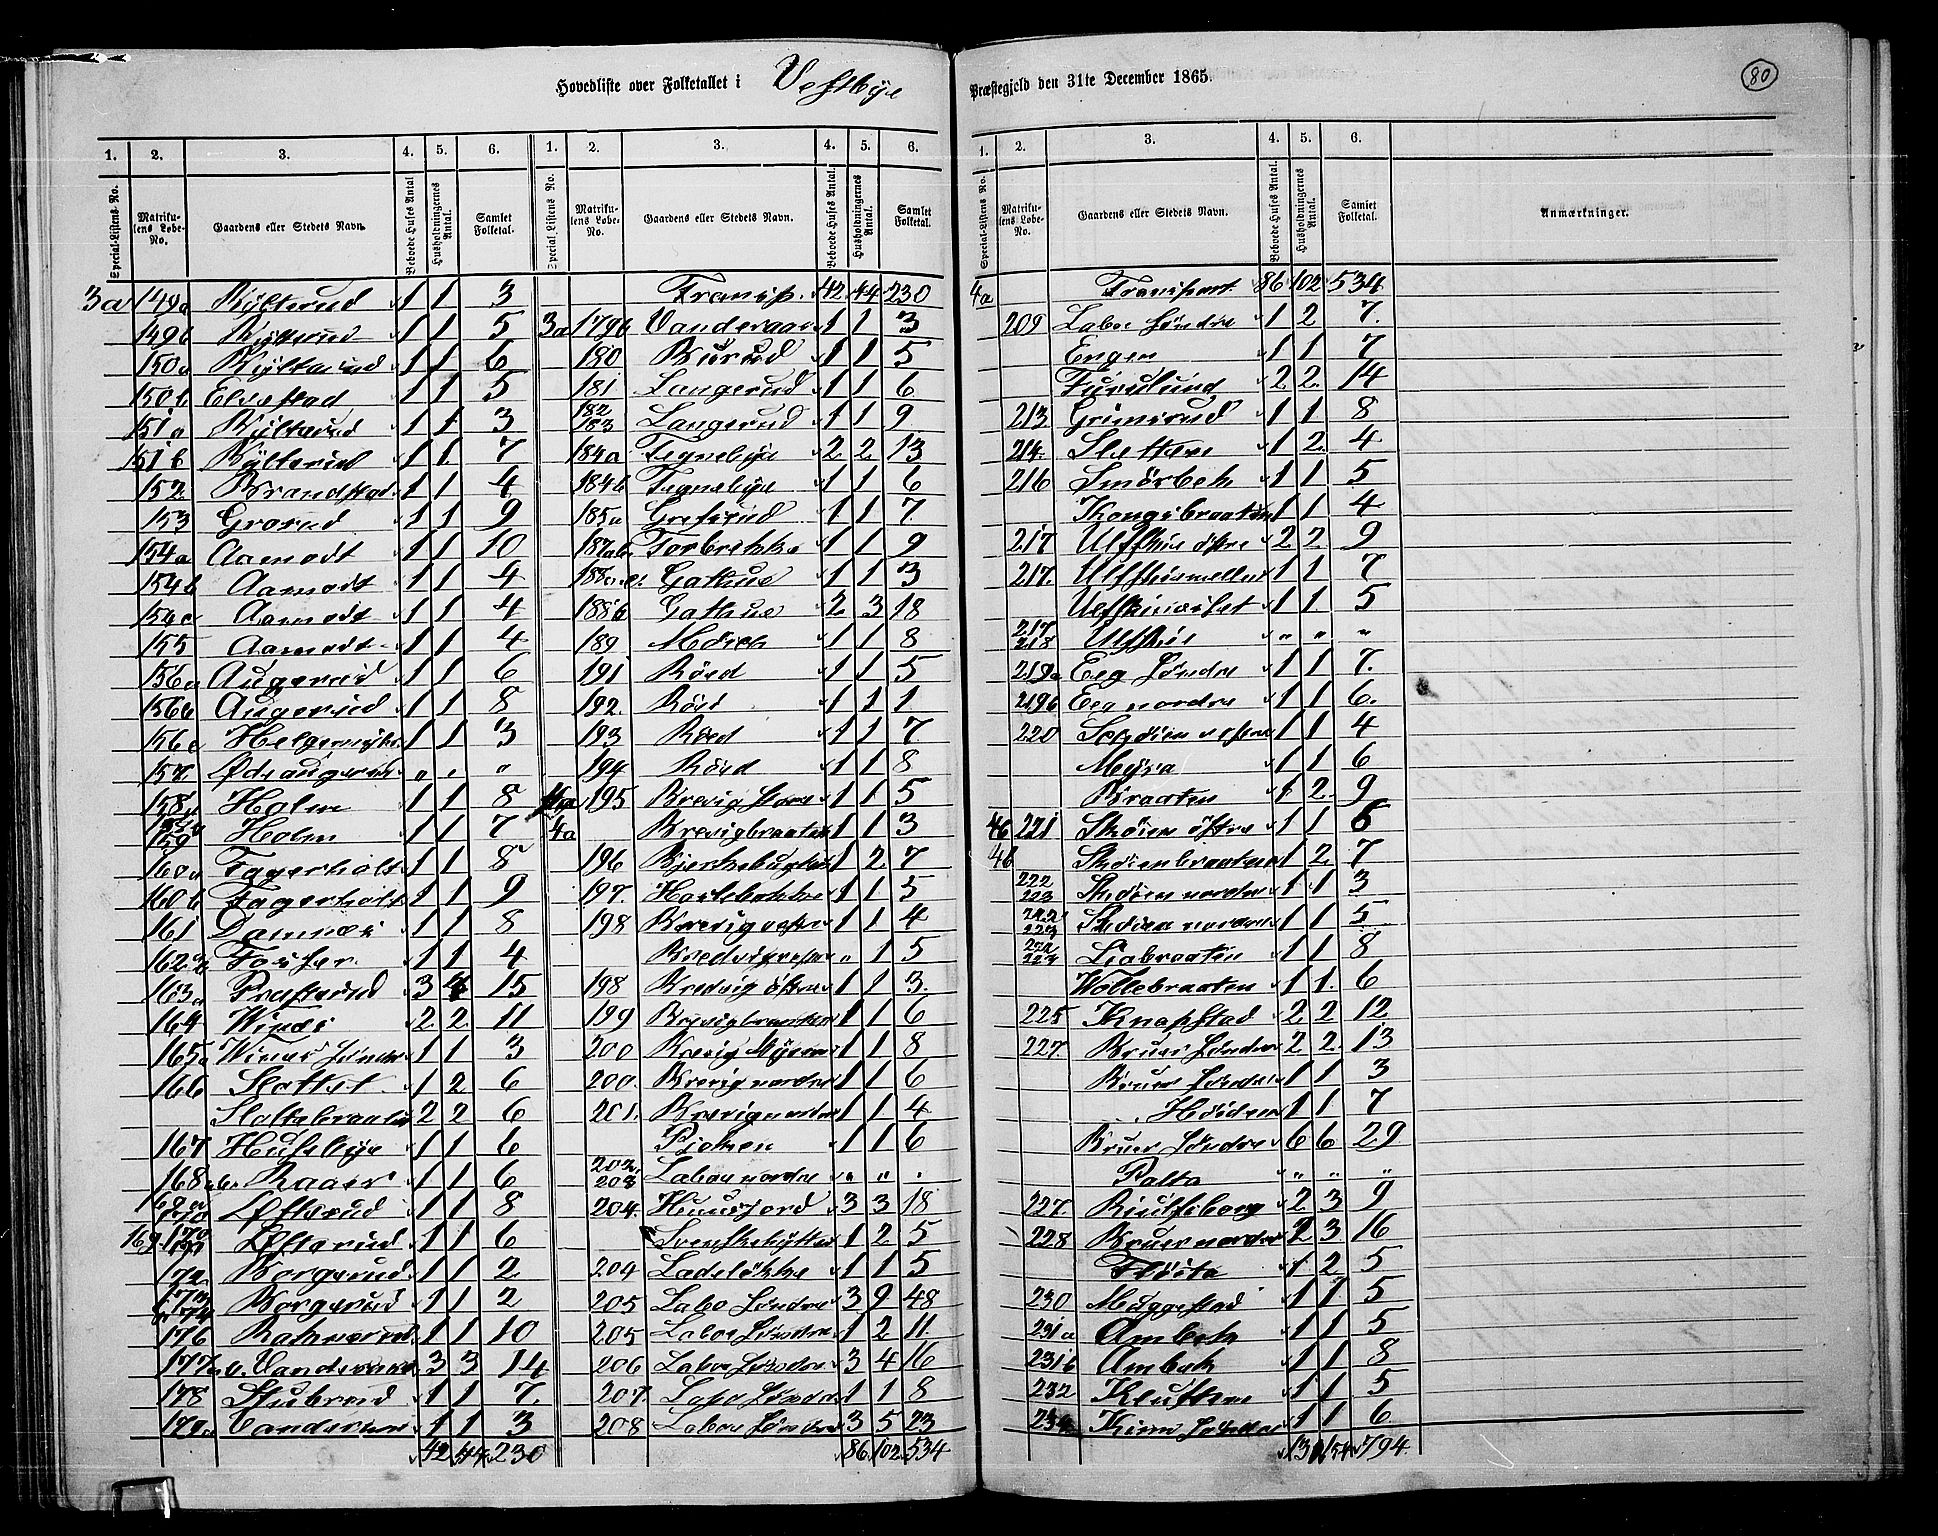 80
Hovedliste over Folketallet i Vestbye
Præstegjeld den 31te December 1865.
1. 2. 3. 4. 5. 6.
Special-Listens No. Matrikulens Løbe-No. Gaardens eller Stedets Navn. Beboede Huses Antal Husholdningernes Antal. Samlet Folketal.
3a 149a Kylterud 1 1 3
149b Kylterud 1 1 5
150a Kylterud 1 1 6
150b Elvestad 1 1 5
151a Kylterud 1 1 3
151b Kylterud 1 1 7
152 Brandstad 1 1 4
153 Grorud 1 1 9
154a Aamodt 1 1 10
154b Aamodt 1 1 4
154c Aamodt 1 1 4
155 Aamodt 1 1 4
156a Augerud 1 1 6
156b Augerud 1 1 8
156c 1 1 3
157 " " "
158a Holm 1 1 8
159 Holm 1 1 7
160a Fagerholt 1 1 8
160b Fagerholt 1 1 9
161 1 1 8
162 Fosser 1 1 4
163a Præsterud 3 4 15
164 Winæs 2 2 11
165a Winæs Søndre 1 1 3
166 Slottet 1 2 6
Slottebraaten 2 2 6
167 Huseby 1 1 6
168 Raaer 1 1 6
Øfsterud 1 1 8
Øfsterud 1 1 6
172 Borgerud 1 1 2
Borgerud 1 1 2
176 1 1 10
177 3 3 14
178 Stubrud 1 1 7
179a 1 1 3
42 44 230
1. 2. 3. 4. 5. 6.
Special Listens No. Matrikulens Løbe-No. Gaardens eller Stedets Navn. Beboede Huses Antal. Husholdningernes Antal. Samlet Folketal.
Transp. 42 44 230
3a 179b Vanderaas 1 1 3
180 Burud 1 1 5
181 Langerud 1 1 6
182 183 Langerud 1 1 9
184a Tegnebye 2 2 13
184b Tegnebye 1 1 6
185a Grefsrud 1 1 7
Torbrekke 1 1 9
Gathue 1 1 3
188b Gathue 2 3 18
189 Mörch 1 1 8
191 Röed 1 1 5
192 Röed 1 1 1
193 Röed 1 1 7
194 Röed 1 1 8
195 Brevig store 1 1 5
4a Brevigbraaten 1 1 3
196 1 2 7
197 1 1 5
198 Brevig vestre 1 1 4
" 1 5
198 Bredvig östre 1 1 3
199 Brevigbraaten 1 1 6
200 Brevig Myren 1 1 8
200 Brevig nordre 1 1 6
201 Brevig nordre 1 1 4
1 1 6
202 203 Laboe nordre " " "
204 Huusfjord 3 3 18
Svenskehytten 1 2 5
204 Ladeløkke 1 1 5
205 Labo Søndre 3 9 48
205 Laboe Søndre 1 2 11
206 Laboe Søndre 3 4 16
207 Labo Søndre 1 1 8
208 Laboe Søndre 3 5 23
86 102 534
1. 2. 3. 4. 5. 6.
Special-Listens No. Matrikulens Løbe-No. Gaardens eller Stedets Navn. Beboede Huses Antal. Husholdningernes Antal. Samlet Folketal. Anmærkninger.
4a Transport 86 102 534
209 Laboe Søndre 1 2 7
Engen 1 1 7
Furulund 2 2 14
213 Grimsrud 1 1 8
214 Sletten 1 2 4
216 Smörbek 1 1 5
Kongsbraaten 1 1 4
217 östre 2 2 9
217 1 1 7
1 1 5
217 218 " " "
219a Eeg Søndre 1 1 7
219b Eeg nordre 1 1 6
220 vestre 1 1 4
Myra 1 1 6
Braaten 1 2 9
4b 221 Skøien östre 1 1 6
4b Skøienbraaten 1 2 7
222 223 Skøien nordre 1 1 3
222 223 Skøien nordre 1 1 5
Liabraaten 1 1 8
Wollebraaten 1 1 6
225 Knapstad 2 2 12
227 Bruer Søndre 2 2 13
Bruer Søndre 1 1 3
1 1 7
Bruer Søndre 6 6 29
Palta " " "
227 2 3 9
228 Bruer nordre 2 3 16
1 2 5
230 Maggestad 1 1 5
231a Ambek 1 1 5
231b Ambek 1 1 8
232 Kluften 1 1 5
Kiøn Søndre 1 1 6
154 794